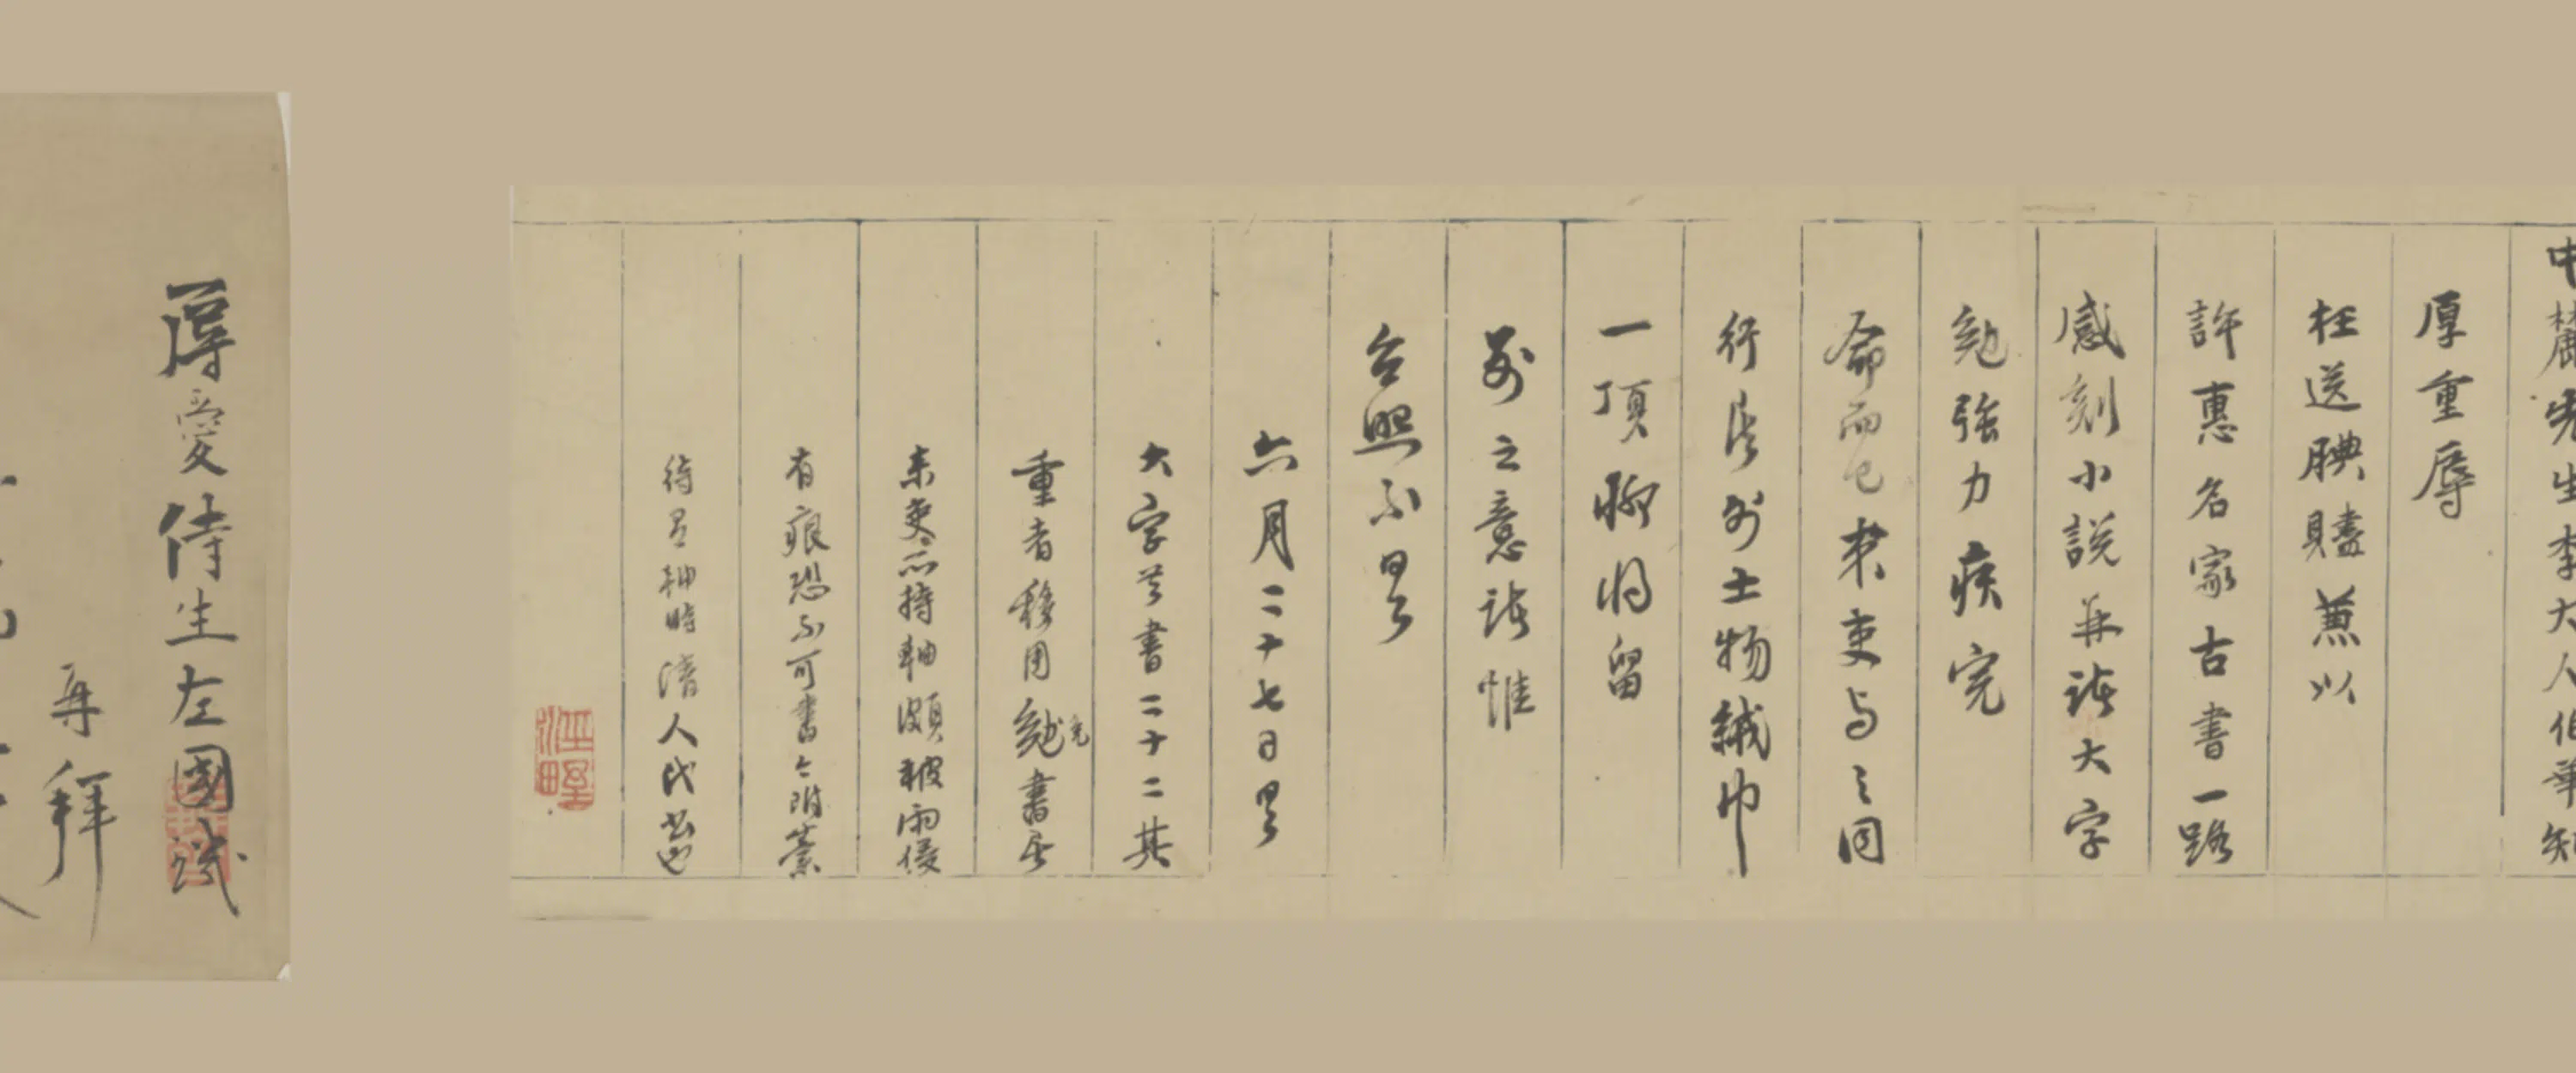 中麓先生李大人伯華知
厚重辱
枉送腆贐蕙以
許惠名家古書一路
感刻小說并諸大字
勉強力疾完
命而已來吏与之同
行外土物絨巾
一頂聊將留
別之意諸惟
台照不具
六月二十七日具
大字共書二十二其
重者移用勉完書至
來吏所持軸頗被雨侵
有痕恐不可書今附
待軸時清人代書也
厚愛侍生左國璣
再拜